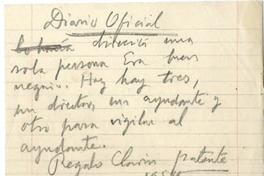 Diario Oficial
lo hacía dirección una
sola persona Era buen
negocio. Hoy hay tres,
un director, un ayudante y
otro para vigilar al
ayudante.
Regalo patente